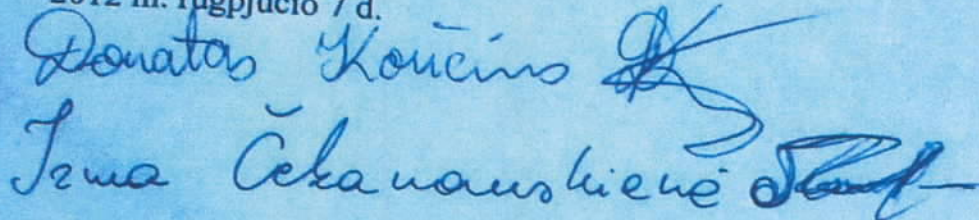 2012 m. rugpjūčio 7 d.
Donatas
Irma Čekanauskienė